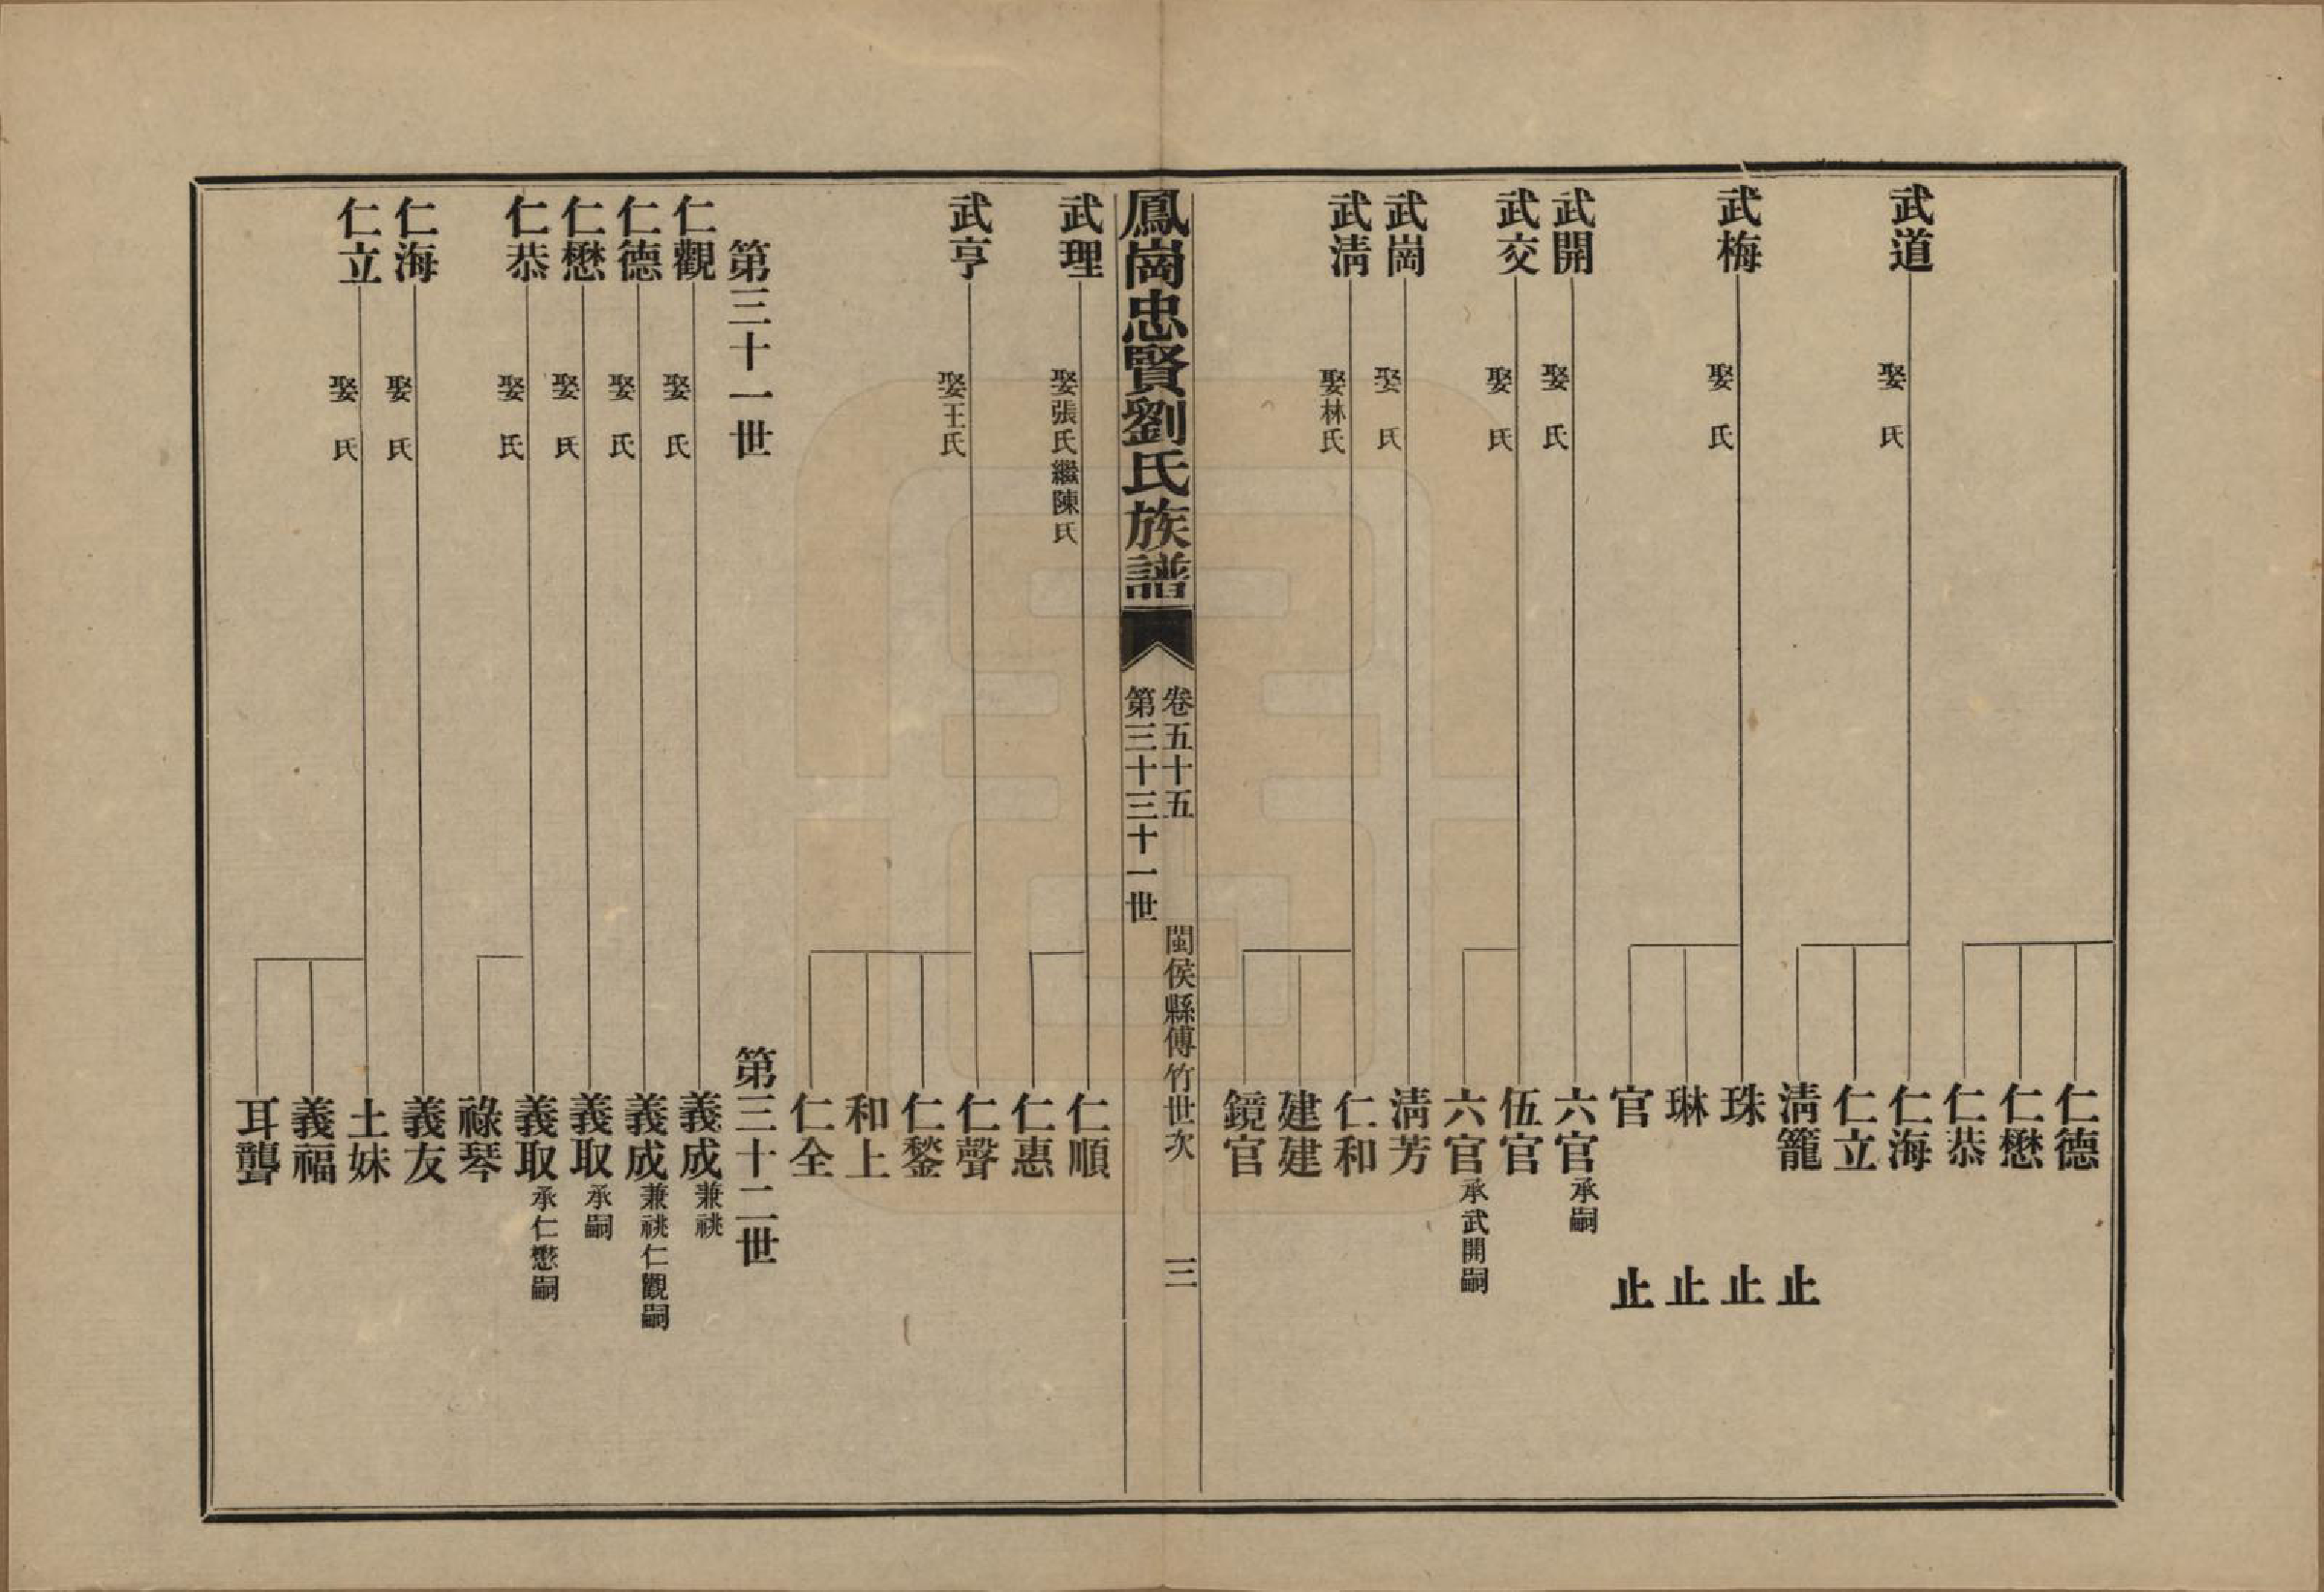 仁德
仁懋
仁恭
武道
娶 氏
仁海
仁立
清籠 止
武梅
娶 氏
珠 止
琳 止
官 止
武開
娶 氏
六官承嗣
武交
娶 氏
伍官
六官承武開嗣
武崗
娶 氏
清芳
武清
娶林氏
仁和
建建
鏡官
鳳崗忠賢劉氏族譜
卷五十五 閩侯縣傅竹世次 三
第三十三十一世
武理
娶張氏繼陳氏
仁順
仁惠
武亨
娶王氏
仁聲
仁鍫
和上
仁全
第三十一世
第三十二世
仁觀
娶 氏
義成兼祧
仁德
娶 氏
義成兼祧仁觀嗣
仁懋
娶 氏
義取承嗣
仁恭
娶 氏
義取承仁懋嗣
祿琴
仁海
娶 氏
義友
仁立
娶 氏
土妹
義福
耳聾